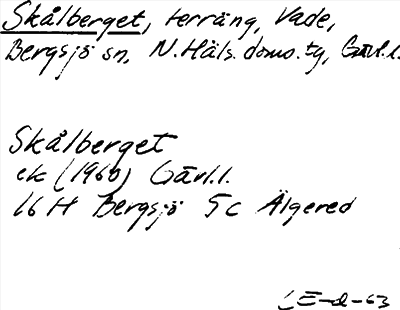 Skålberget, terräng, Vade,
Bergsjö sn, N.Häls. doms. tg, Gävl.l.
Skålberget
ek (1960) Gävl.l.
16 H Bergsjö 5c Älgered
LE-d-63